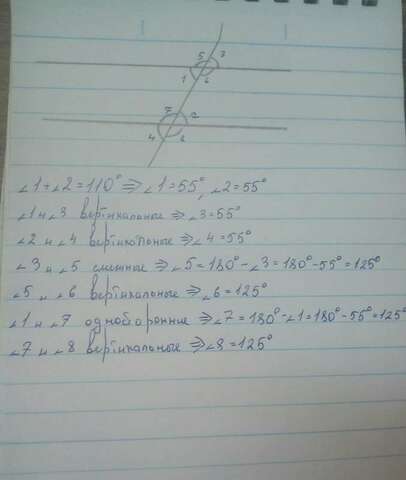 5 3
1 6
7 2
4 8
∠1+∠2=110° ⇒ ∠1=55°, ∠2=55°
∠1 и ∠3 вертикальные ⇒ ∠3=55°
∠2 и ∠4 вертикальные ⇒ ∠4=55°
∠3 и ∠5 смежные ⇒ ∠5=180°-∠3=180°-55°=125°
∠5 и ∠6 вертикальные ⇒ ∠6=125°
∠1 и ∠7 односторонние ⇒ ∠7=180°-∠1=180°-55°=125°
∠7 и ∠8 вертикальные ⇒ ∠8=125°